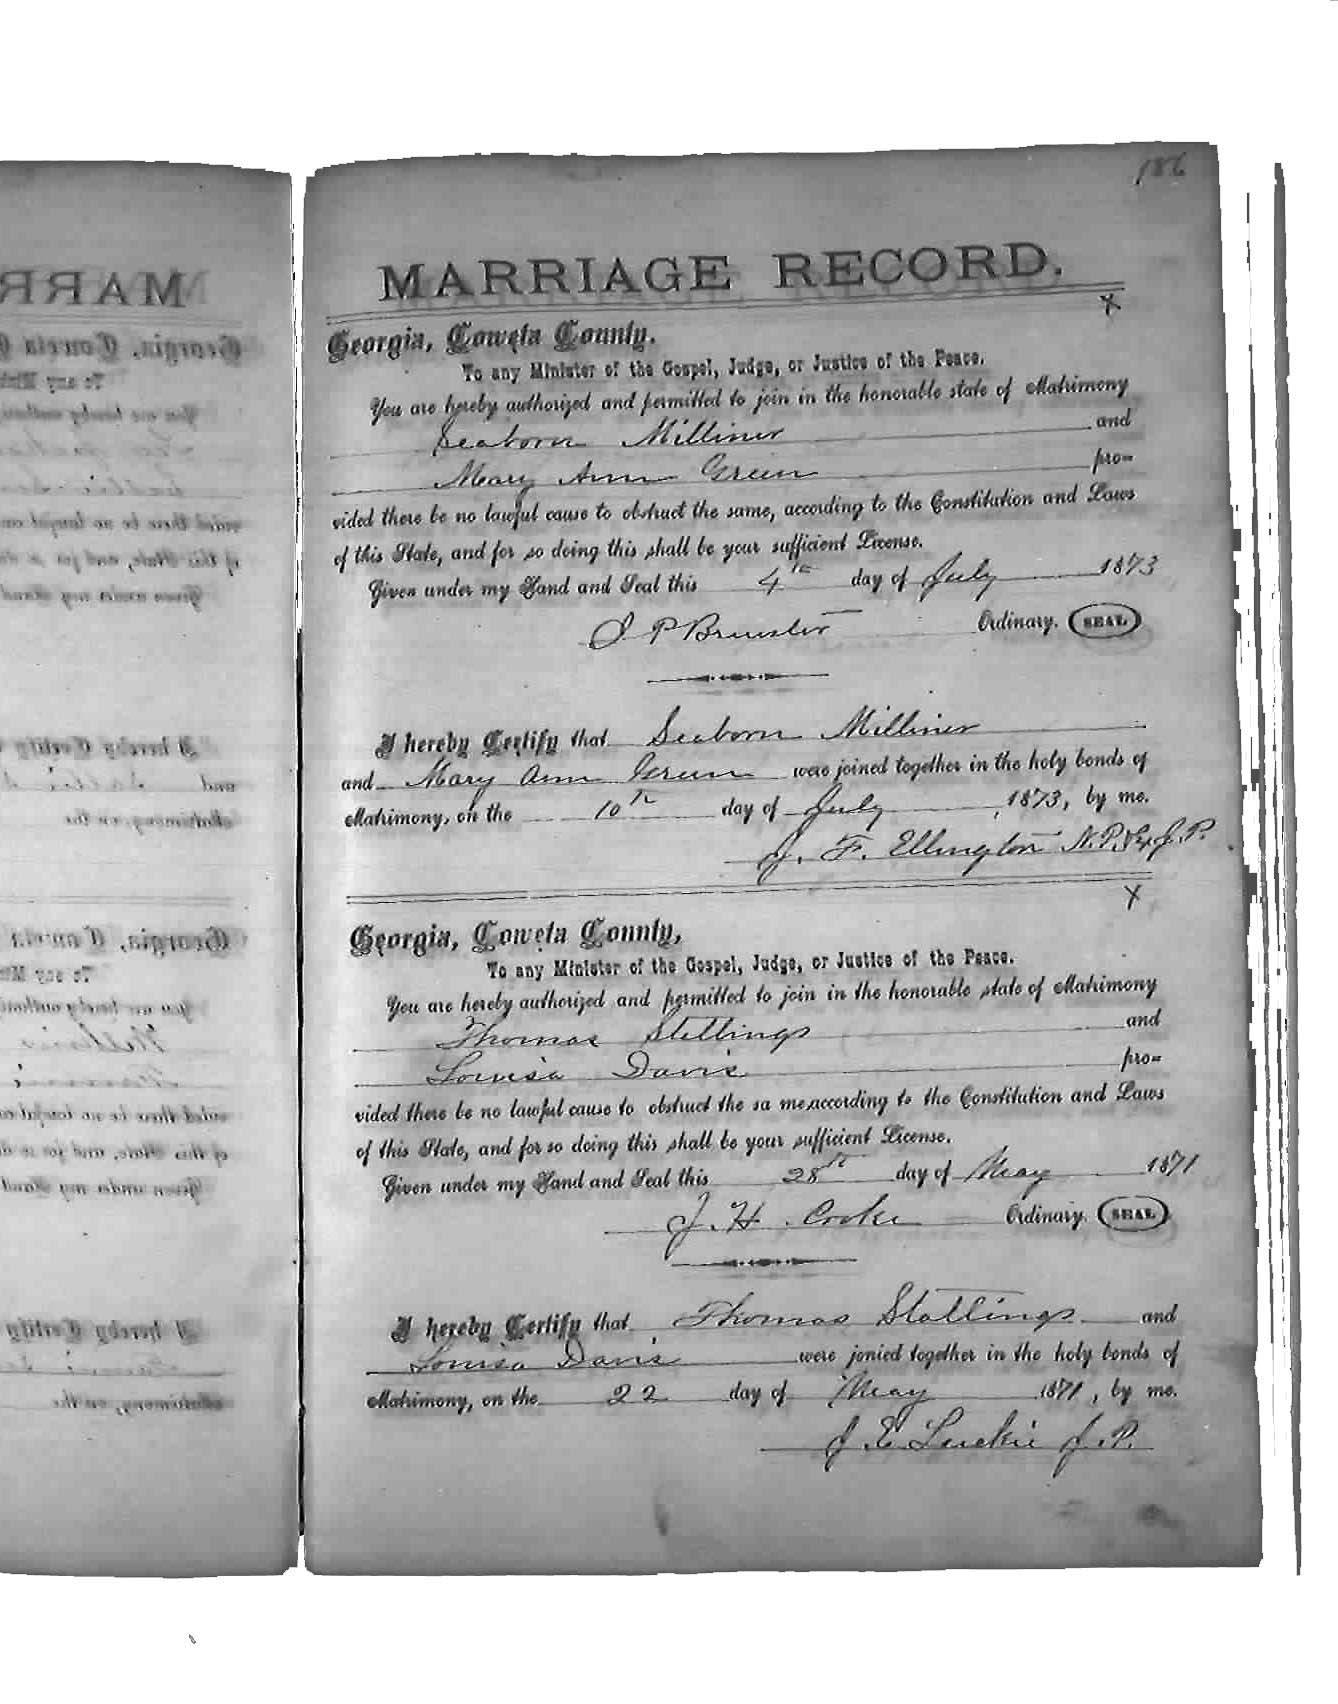 186
MARRIAGE RECORD.
X
Georgia, Coweta County.
To any Minister of the Gospel, Judge, or Justice of the Peace.
You are hereby authorized and permitted to join in the honorable state of Matrimony
Seaborn Milliner and
Mary Ann Green pro=
vided there be no lawful cause to obstruct the same, according to the Constitution and Laws
of this State, and for so doing this shall be your sufficient License.
Given under my Hand and Seal this 4th day of July 1873
J P Brewster Ordinary. SEAL
I hereby Certify that Seaborn Milliner
and Mary Ann Green were joined together in the holy bonds of
Matrimony, on the 10th day of July, 1873, by me.
J. F. Ellington N.P. & Ex J.P.
X
Georgia, Coweta County,
To any Minister of the Gospel, Judge, or Justice of the Peace.
You are hereby authorized and permitted to join in the honorable state of Matrimony
Thomas Stallings and
Louisa Davis pro=
vided there be no lawful cause to obstruct the sa me, according to the Constitution and Laws
of this State, and for so doing this shall be your sufficient License.
Given under my Hand and Seal this 28th day of May 1871
J. H. Cooke Ordinary. SEAL
I hereby Certify that Thomas Stallings and
Louisa Davis were jonied together in the holy bonds of
Matrimony, on the 22 day of May 1871, by me.
J. E. Luckie J.P.